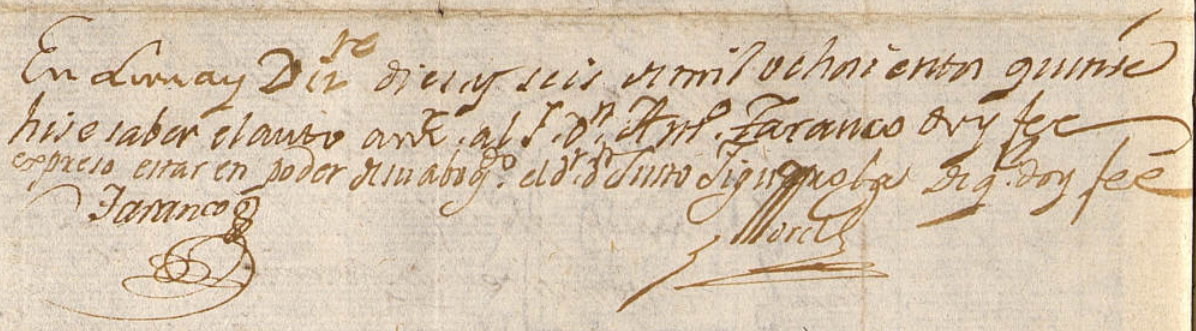 En Lima y Diz.re dies y seis de mil ochosientos quinse
hise saber el auto ant.r al S.r D.n Ant.o Taranco doy fee
expreso estar en poder de su abog.do el D.r D.n Justo Figuerola de q. doy feé
Taranco
Morel